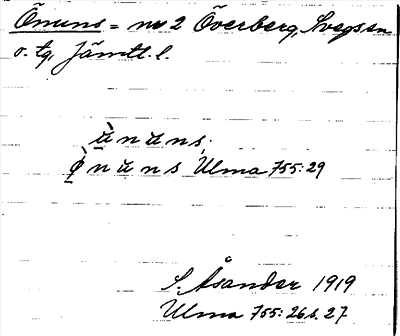 Ömuns = nr 2 Överberg, Svegs sn
o. tg, Jämtl. l.
ùnuns;
ǫ̀nuns Ulma 755:29
S. Åsander 1919
Ulma 755: 26 s. 27